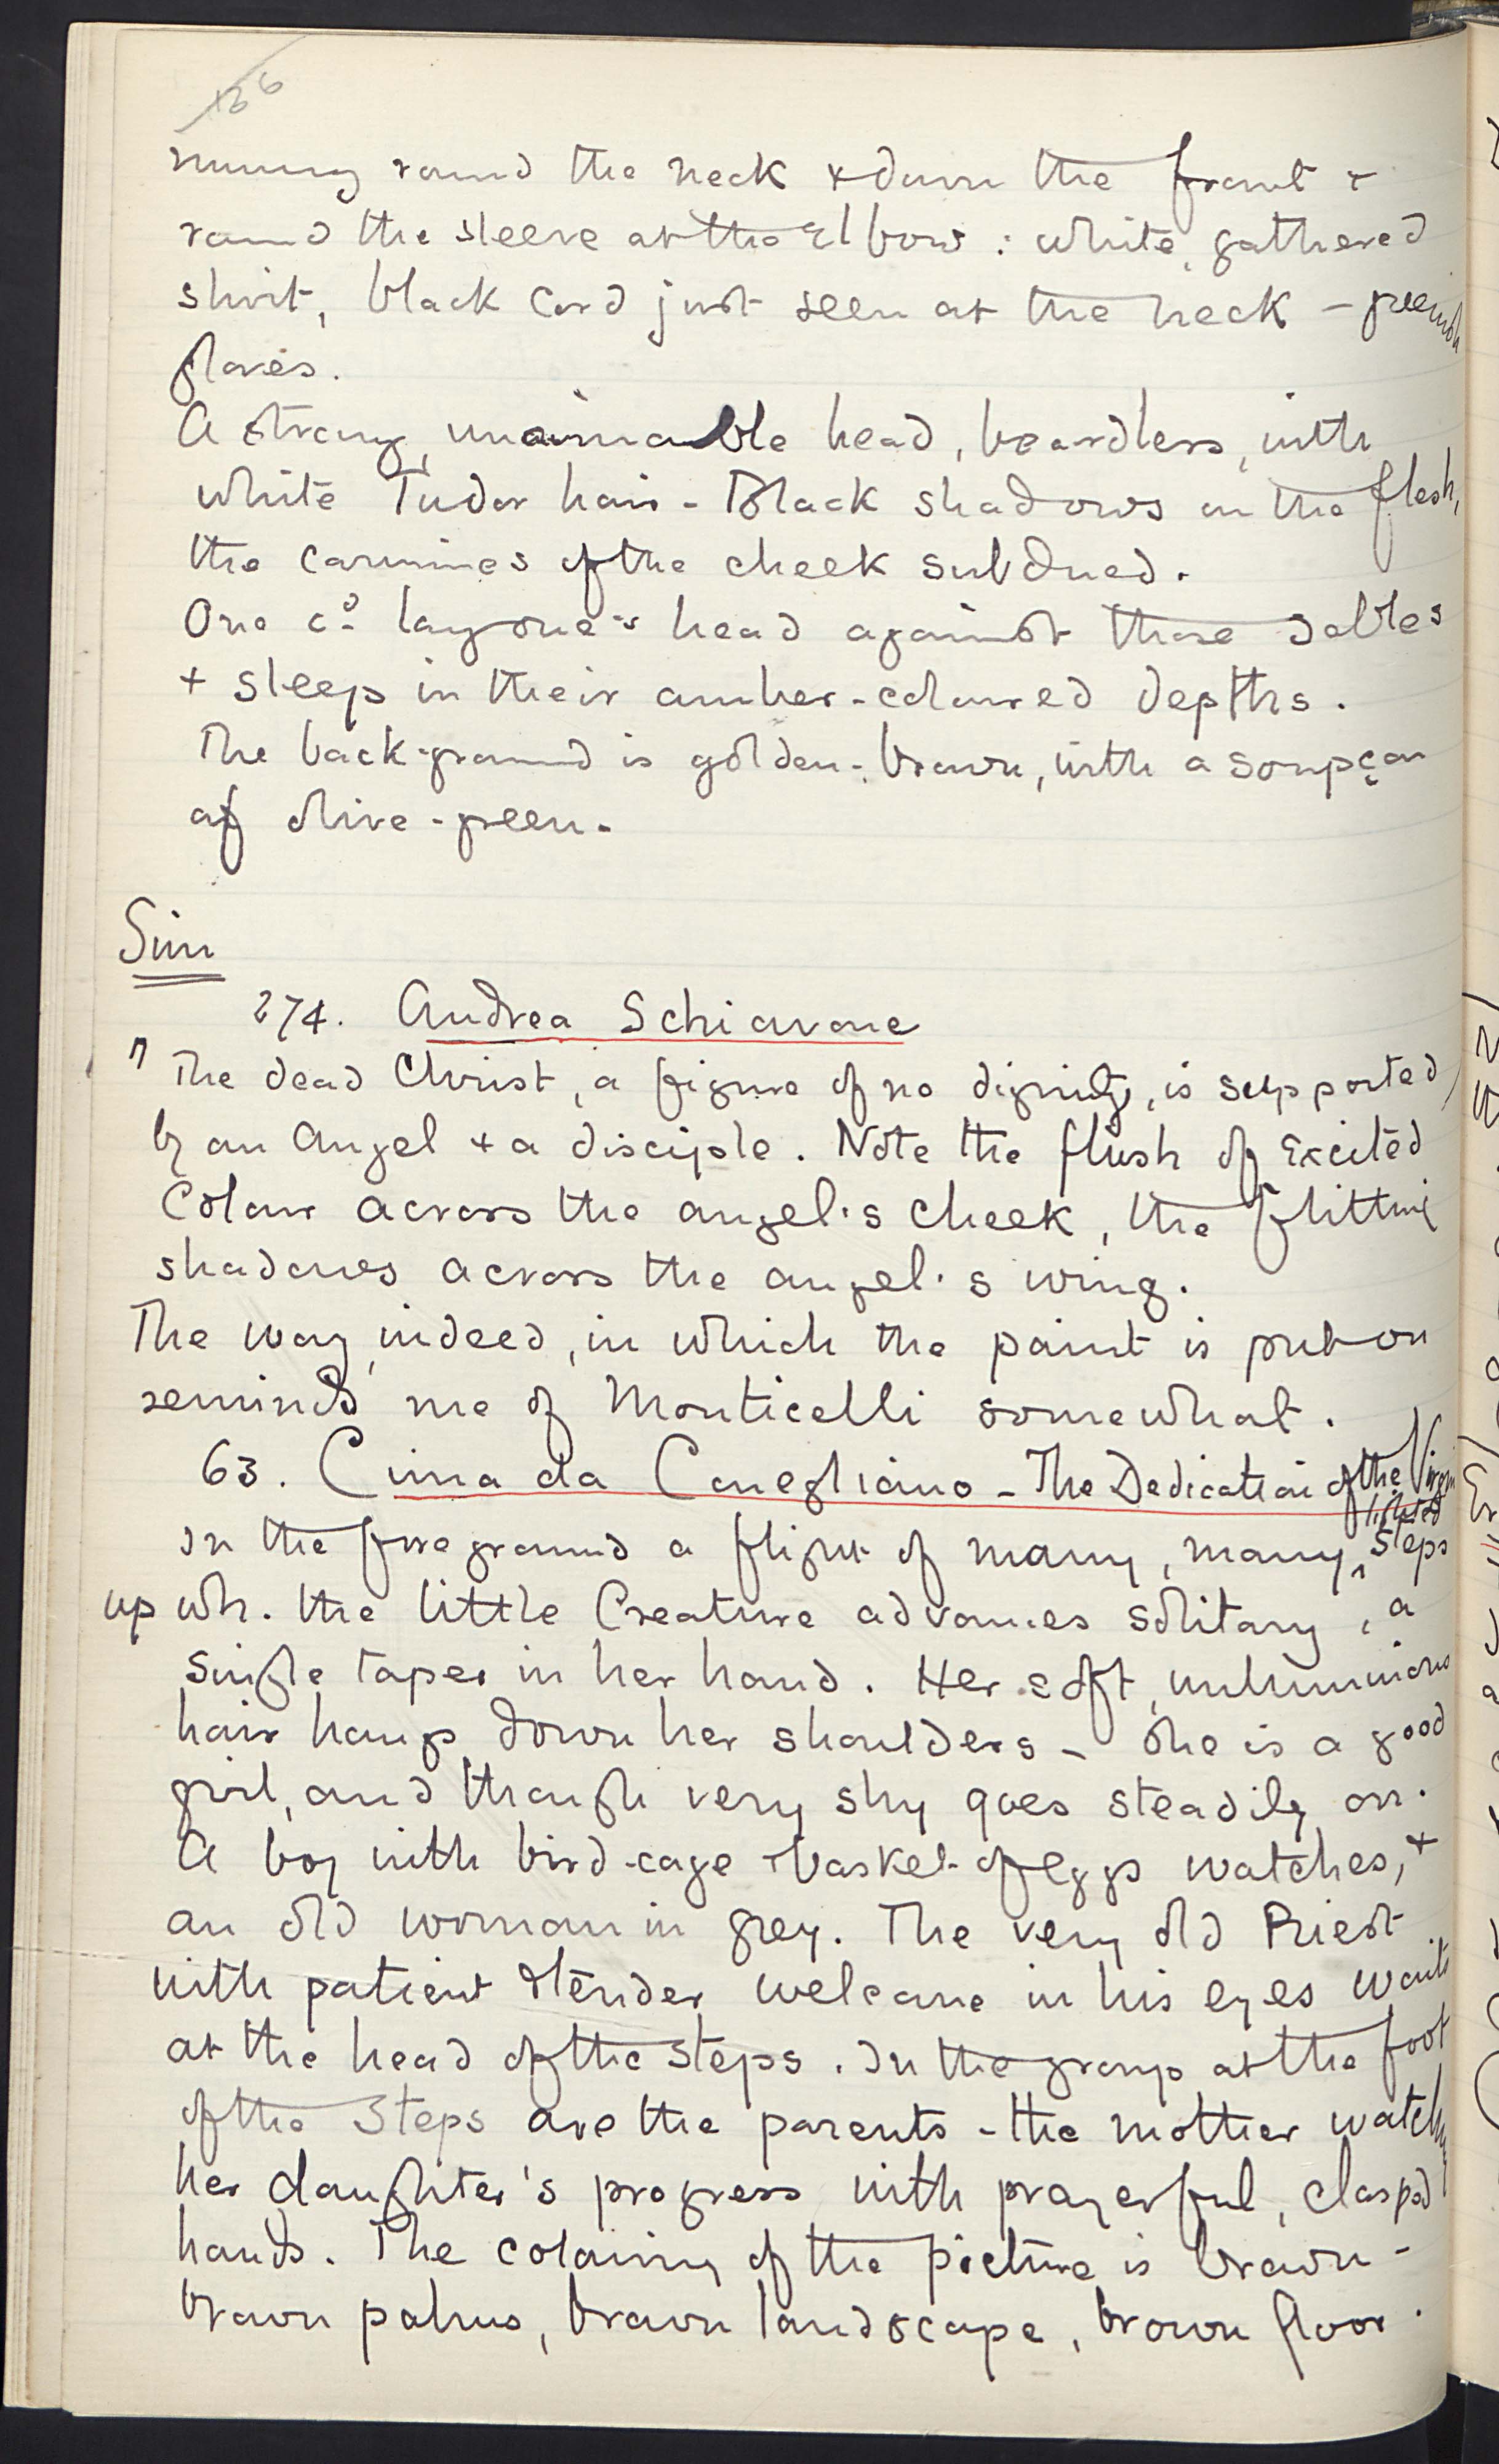 running round the neck & down the front &
round the sleeve at the Elbow : white, gathered
shirt, black cord just seen at the neck - greenish
gloves.
A strong, unamiable head, beardless, with
white Tudor hair - Black shadows on the flesh,
the carmines of the cheek subdued.
One cd lay one's head against those sables
+ sleep in their amber-coloured depths.
The back-ground is golden-brown, with a soupçon
of olive-green.
Sim
274. Andrea Schiavone
" The dead Christ, a figure of no dignity, is supported
by an Angel + a disciple. Note the flush of Excited
Colour across the angel's cheek, the flitting
shadows across the angel's wing.
The way, indeed, in which the paint is put on
reminds me of Monticelli somewhat.
63. Cima da Conegliano - The Dedication of the Virgin
In the foreground a flight of many, many, steps
up wh. the little Creature advances solitary, a
single taper in her hand. Her soft, unluminous
hair hangs down her shoulders - She is a good
girl, and though very shy goes steadily on.
A boy with bird-cage + basket of eggs watches, +
an old woman in grey. The very old Priest
with patient + tender welcome in his eyes waits
at the head of the steps. In the group at the foot
of the Steps are the parents - the mother watching
her daughter's progress with prayerful, clasped
hands. The colouring of the picture is brown -
brown palms, brown landscape, brown floor.